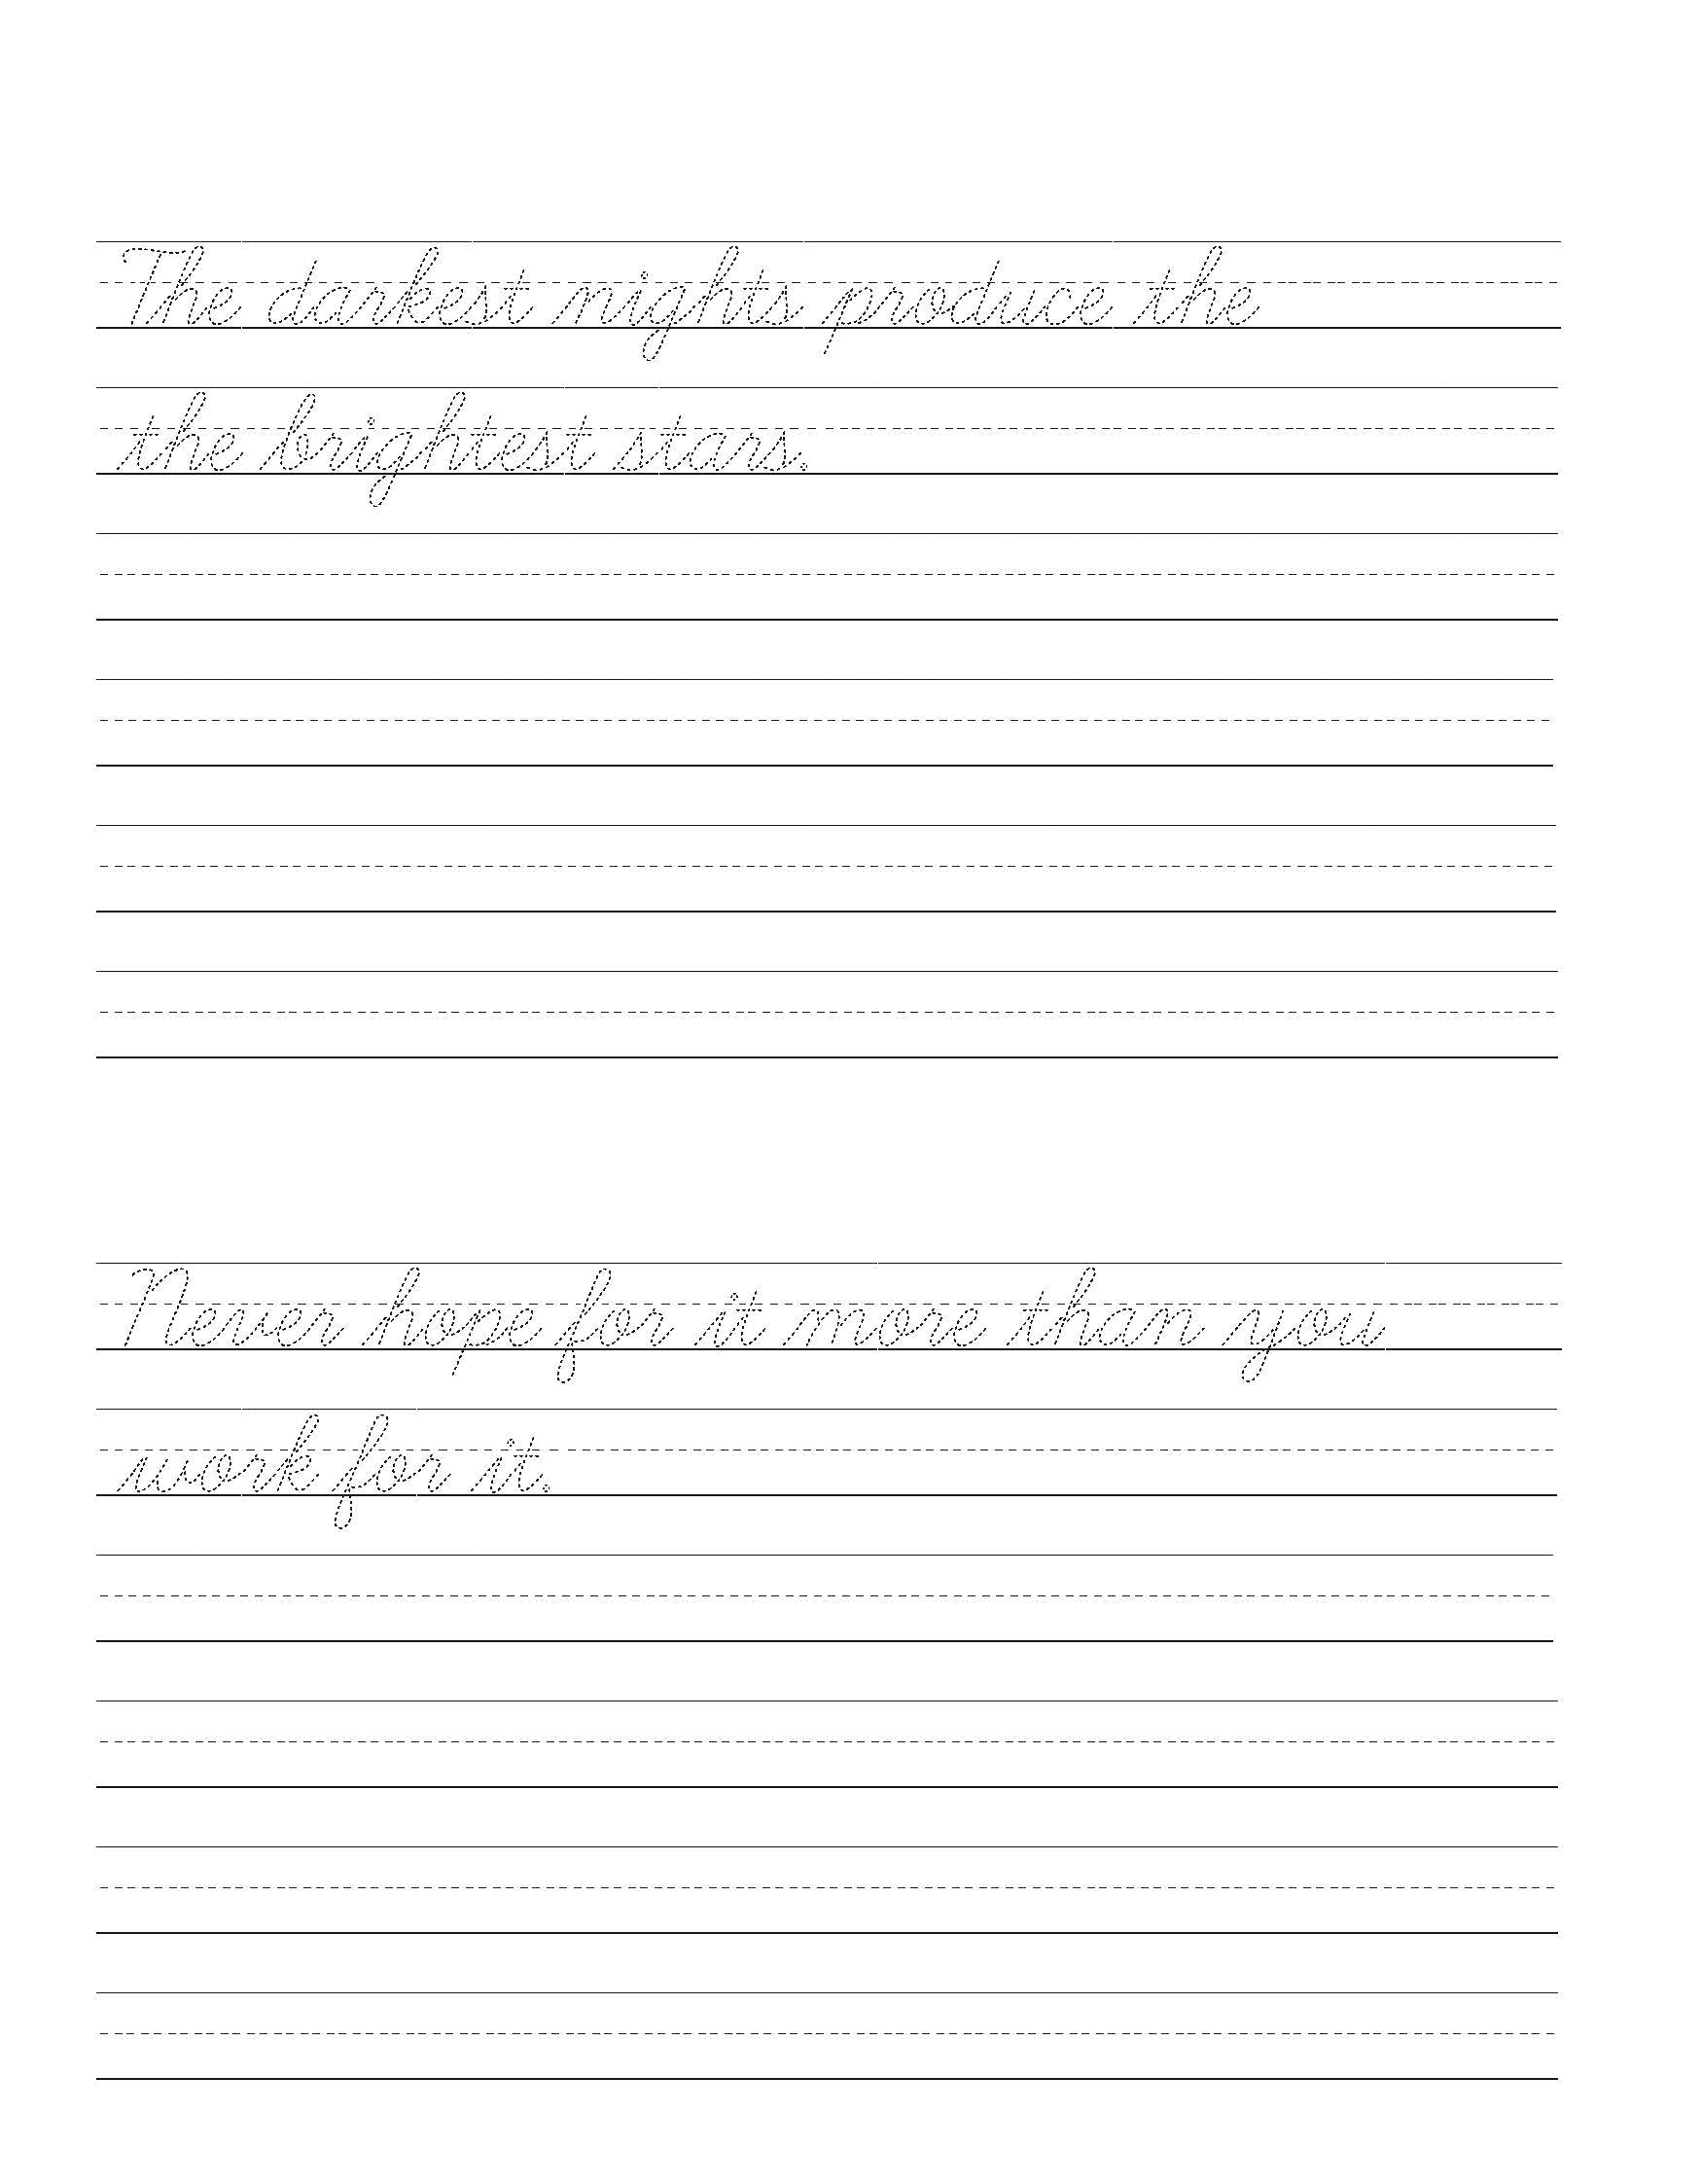 The darkest nights produce the
the brightest stars.
Never hope for it more than you
work for it.